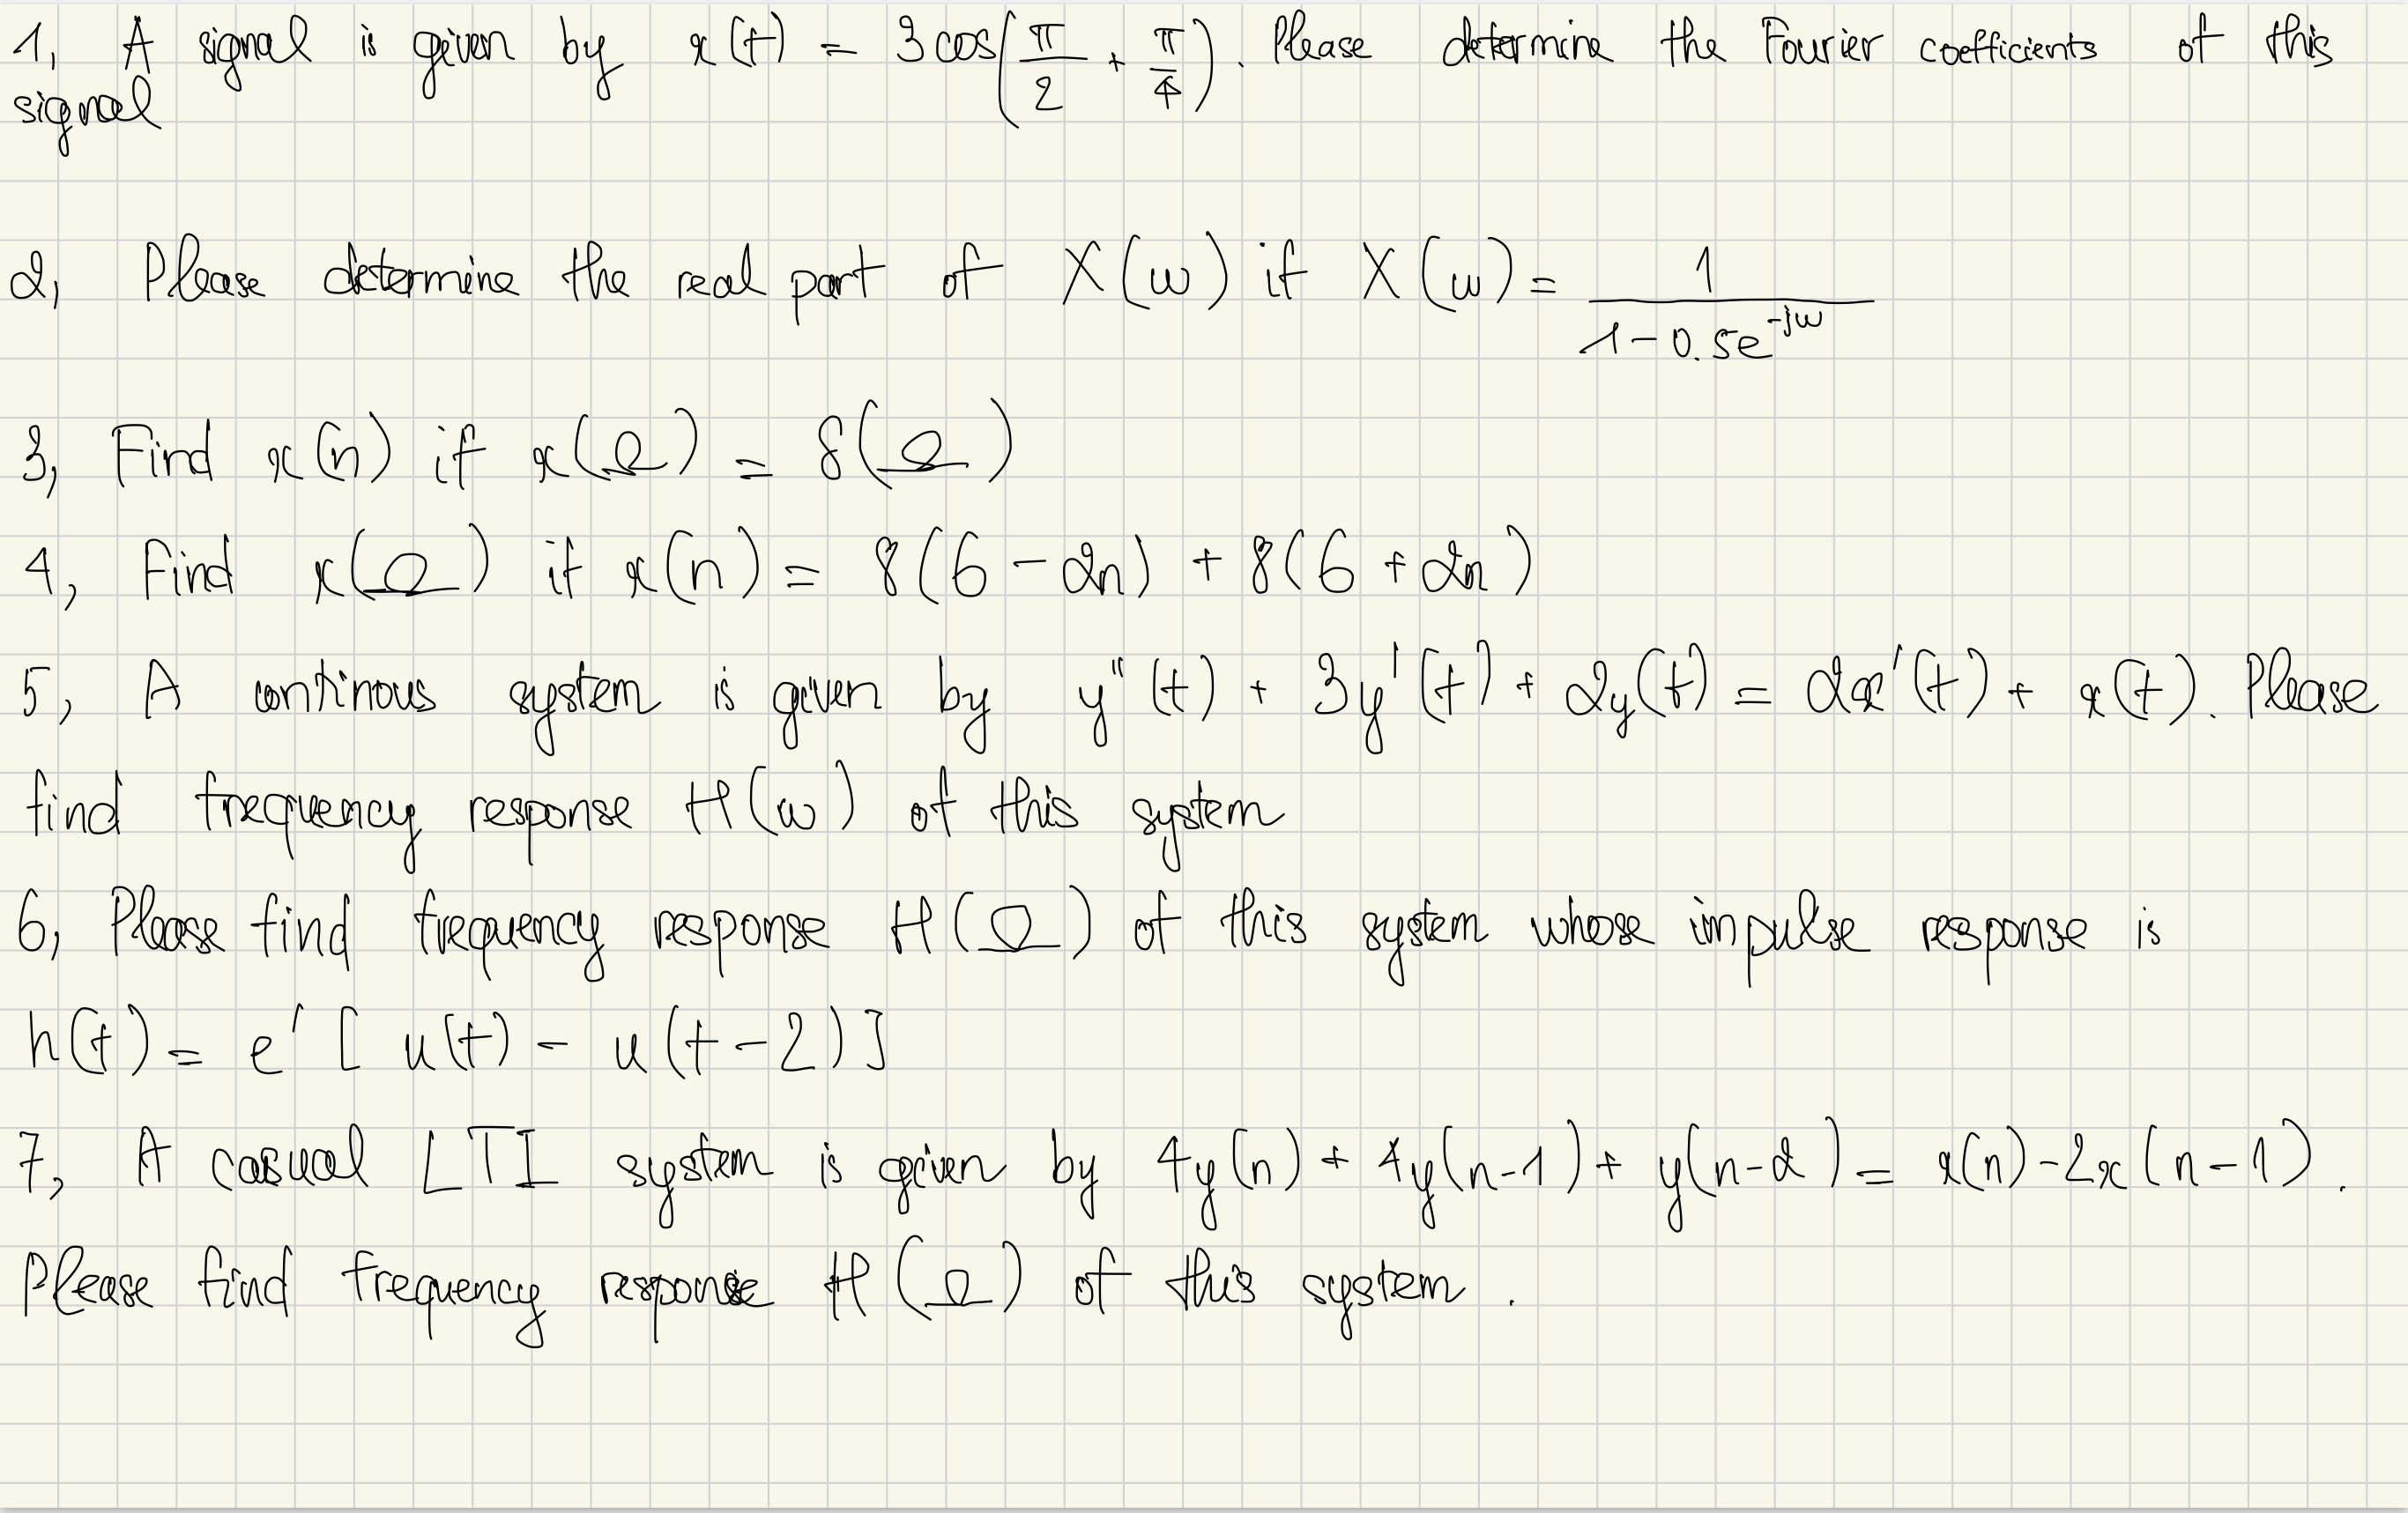 1, A signal is given by x(t) = 3cos(π/2 + π/4). Please determine the Fourier coefficients of this
signal
2, Please determine the real part of X(ω) if X(ω) = 1/(1-0.5e^-jω)
3, Find x(n) if x(Ω) = δ(Ω)
4, Find x(Ω) if x(n) = δ(6-2n) + δ(6+2n)
5, A continous system is given by y''(t) + 3y'(t) + 2y(t) = 2x'(t) + x(t). Please
find frequency response H(ω) of this system
6, Please find frequency response H(Ω) of this system whose impulse response is
h(t) = e' [u(t) - u(t-2)]
7, A casual LTI system is given by 4y(n) + 4y(n-1) + y(n-2) = x(n) - 2x(n-1).
Please find frequency response H(Ω) of this system.